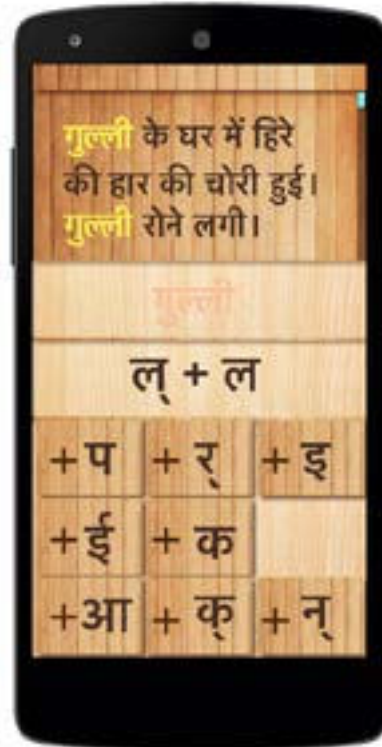 गुल्ली के घर में हिरे
की हार की चोरी हुई।
गुल्ली रोने लगी।
गुल्ली
ल् + ल
+ प + र् + इ
+ ई + क
+ आ + क् + न्